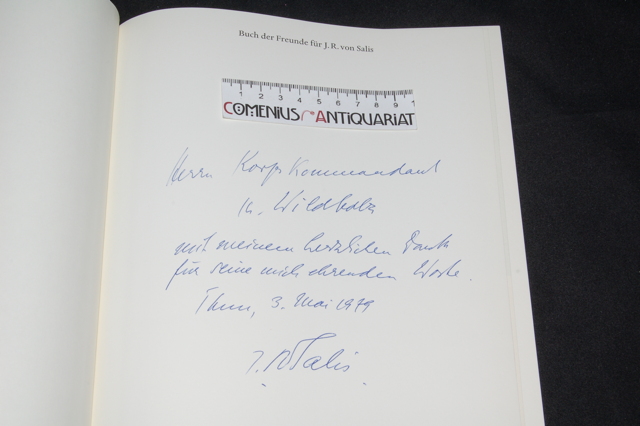 Buch der Freunde für J. R. von Salis
1 2 3 4 5 6 7 8 9 1
COMENIUS-ANTIQUARIAT
Herrn Korpskommandant
Wildbolz
mit meinem herzlichen Dank
für seine mich ehrenden Worte.
Thun, 3. Mai 1979
J. R. Salis